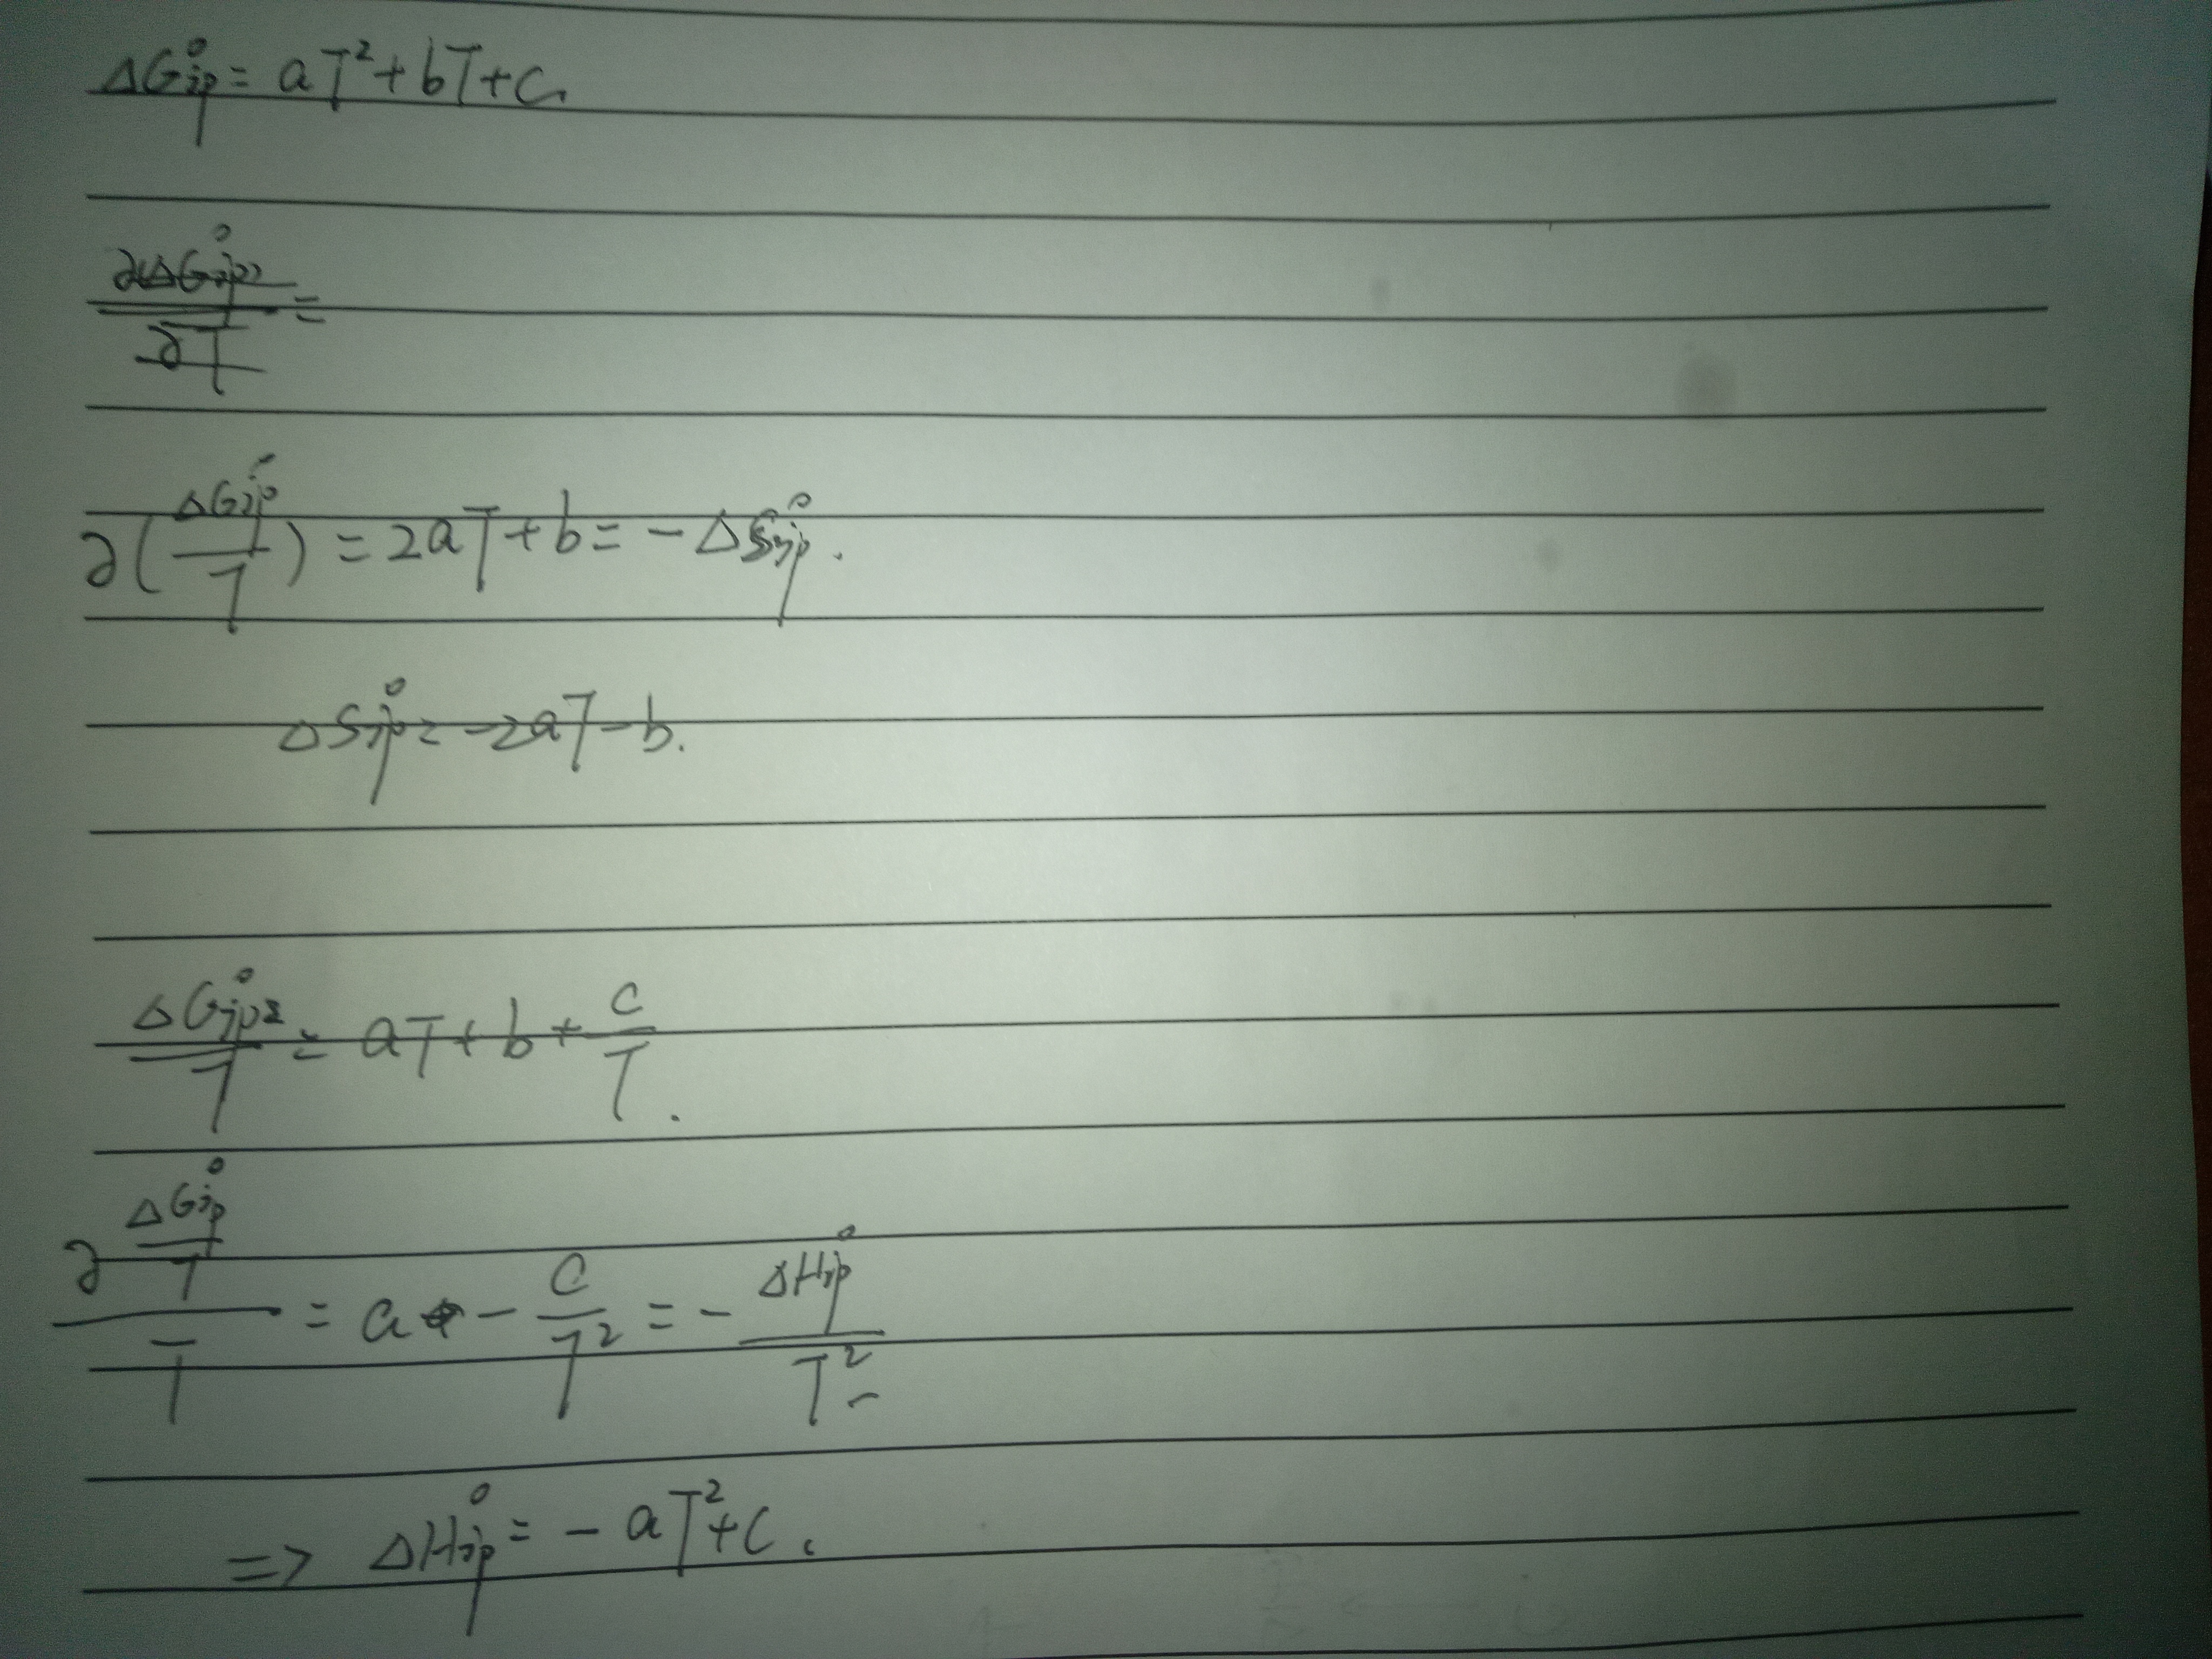 ΔG°ip = aT² + bT + c.
∂(ΔG°ip) / ∂T =
∂(ΔG°ip / T) = 2aT + b = - ΔS°ip.
ΔS°ip = -2aT - b.
ΔG°ip / T = aT + b + c/T.
∂ (ΔG°ip / T) / T = a - c/T² = - ΔH°ip / T²
=> ΔH°ip = - aT² + c.